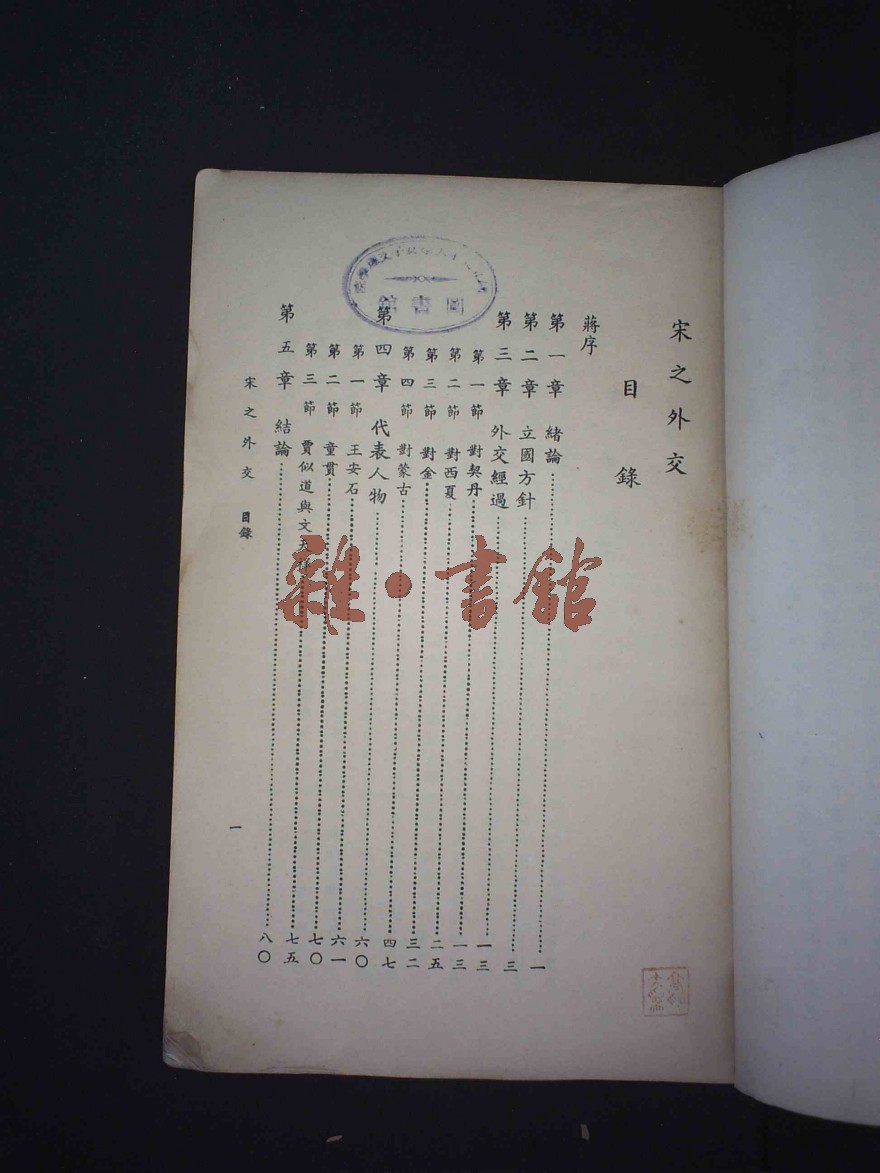 宋之外交
目錄
蔣序
第一章 緒論……一
第二章 立國方針……三
第三章 外交經過……一三
第一節 對契丹……一三
第二節 對西夏……二五
第三節 對金……三二
第四節 對蒙古……四七
第四章 代表人物……六〇
第一節 王安石……六一
第二節 童貫……七〇
第三節 賈似道與文天祥……七五
第五章 結論……八〇
宋之外交 目錄
一
圖書館
雜·書館